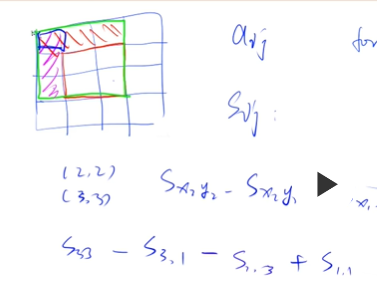 aij for
Sij :
(2,2)
(3,3)
Sx₂y₂ - Sx₂y₁
S33 - S3,1 - S1,3 + S1,1